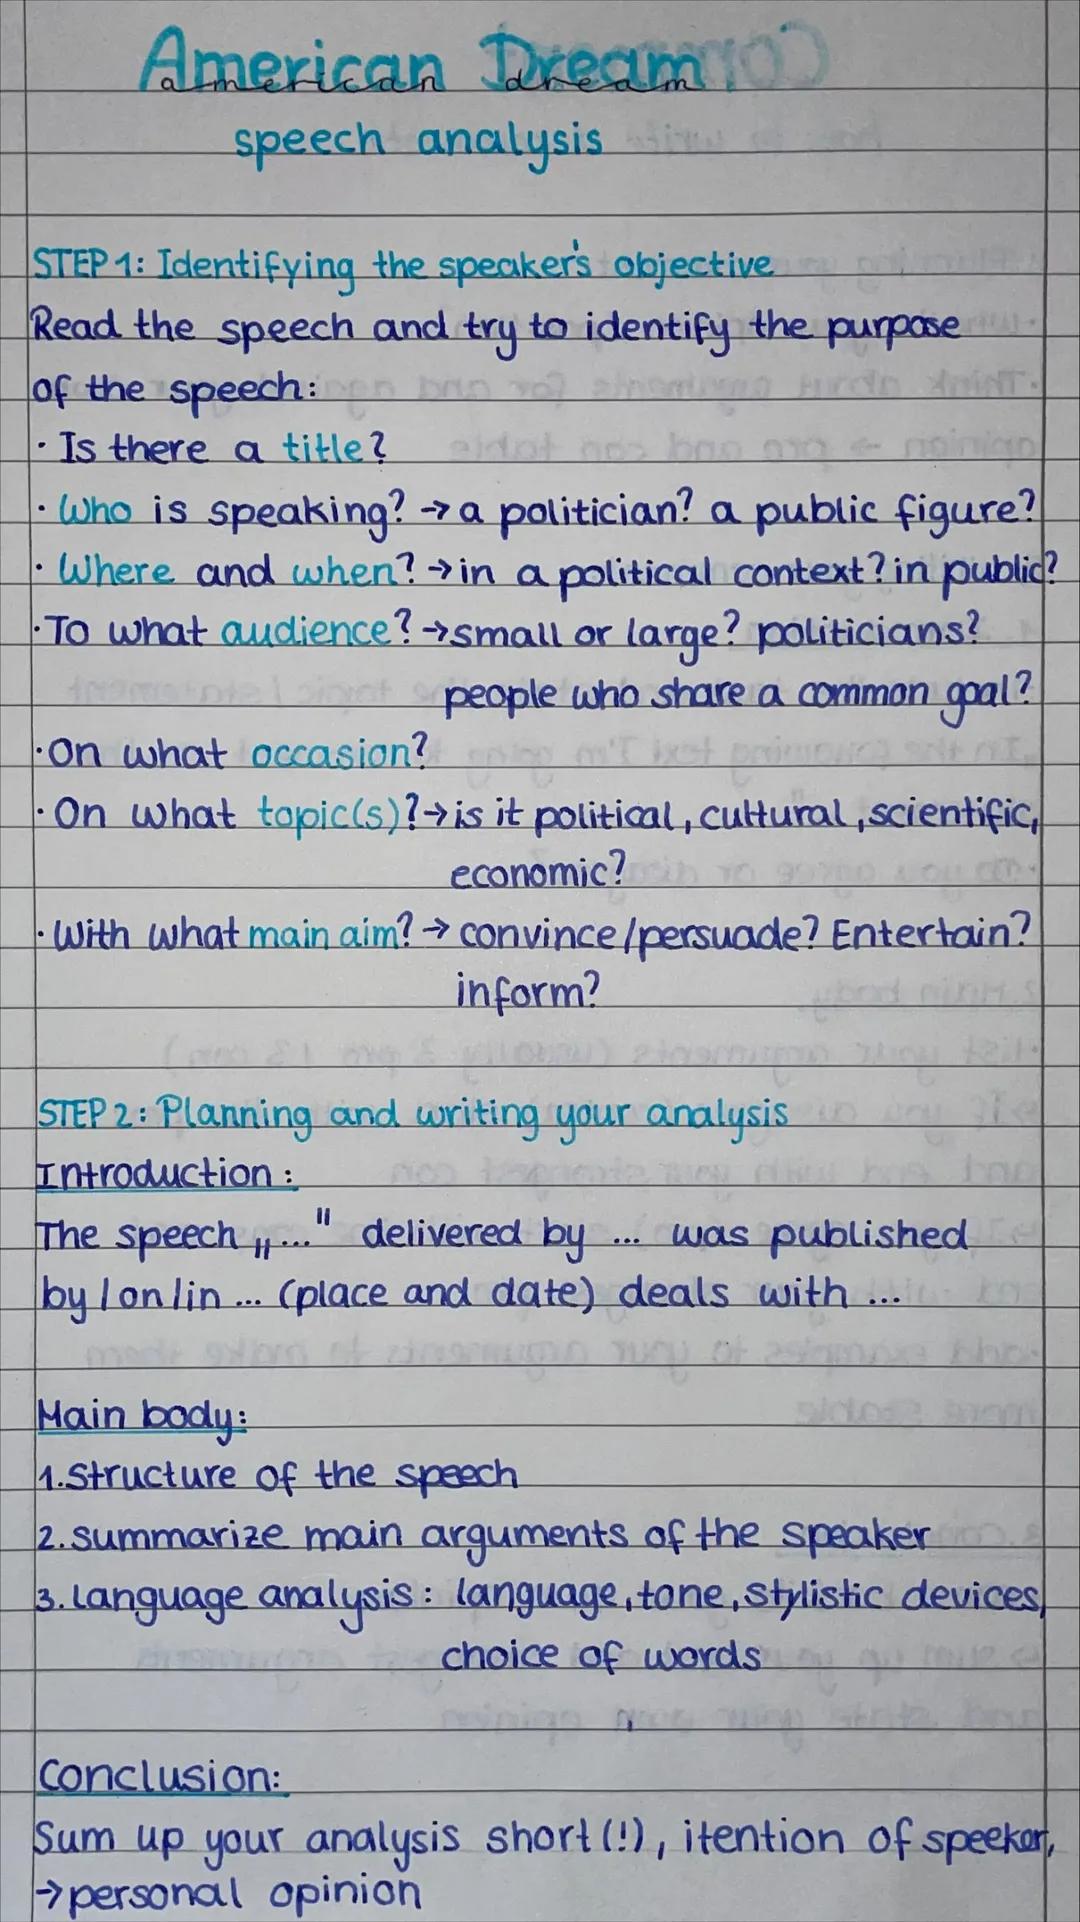 American Dream
american dream
speech analysis
STEP 1: Identifying the speaker's objective
Read the speech and try to identify the purpose
of the speech:
· Is there a title?
· Who is speaking? → a politician? a public figure?
· Where and when? → in a political context? in public?
· To what audience? → small or large? politicians?
people who share a common goal?
· On what occasion?
· On what topic(s)? → is it political, cultural, scientific,
economic?
· With what main aim? → convince/persuade? Entertain?
inform?
STEP 2: Planning and writing your analysis
Introduction:
The speech „..." delivered by ... was published
by/on/in ... (place and date) deals with ...
Main body:
1. Structure of the speech
2. summarize main arguments of the speaker
3. Language analysis: language, tone, stylistic devices,
choice of words
Conclusion:
Sum up your analysis short (!), itention of speeker,
→ personal opinion